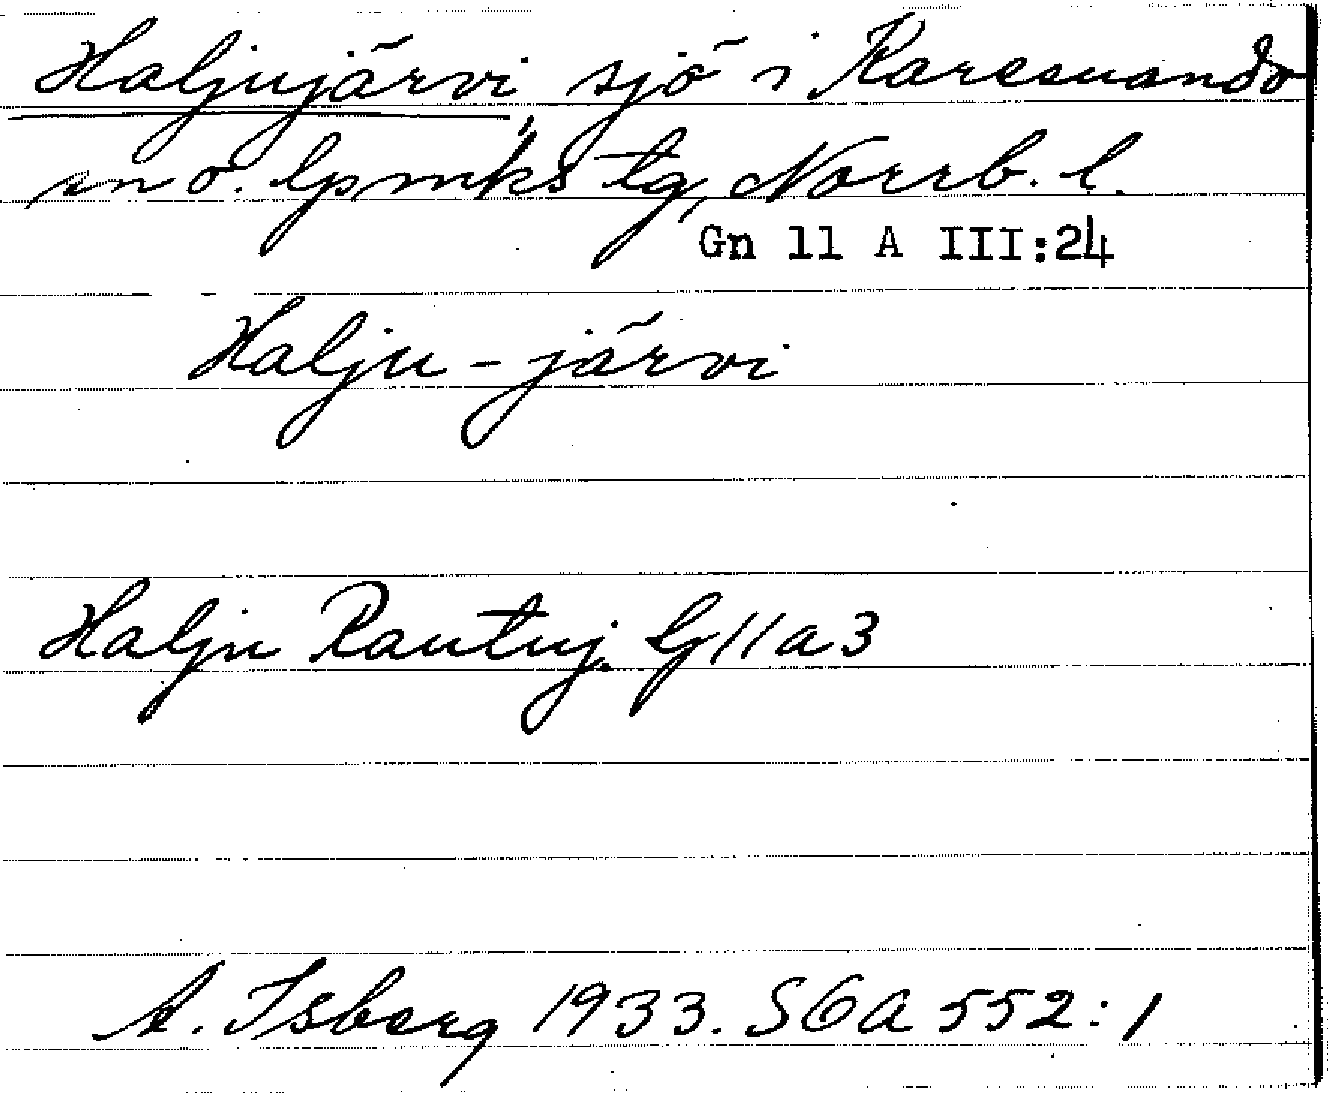 Haljujärvi, sjö i Karesuando
sn o. lpmks tg, Norrb. l.
Gn 11 A III:24
Halju-järvi
Halju Rautuj. G11a3
A. Isberg 1933. SGA 552:1